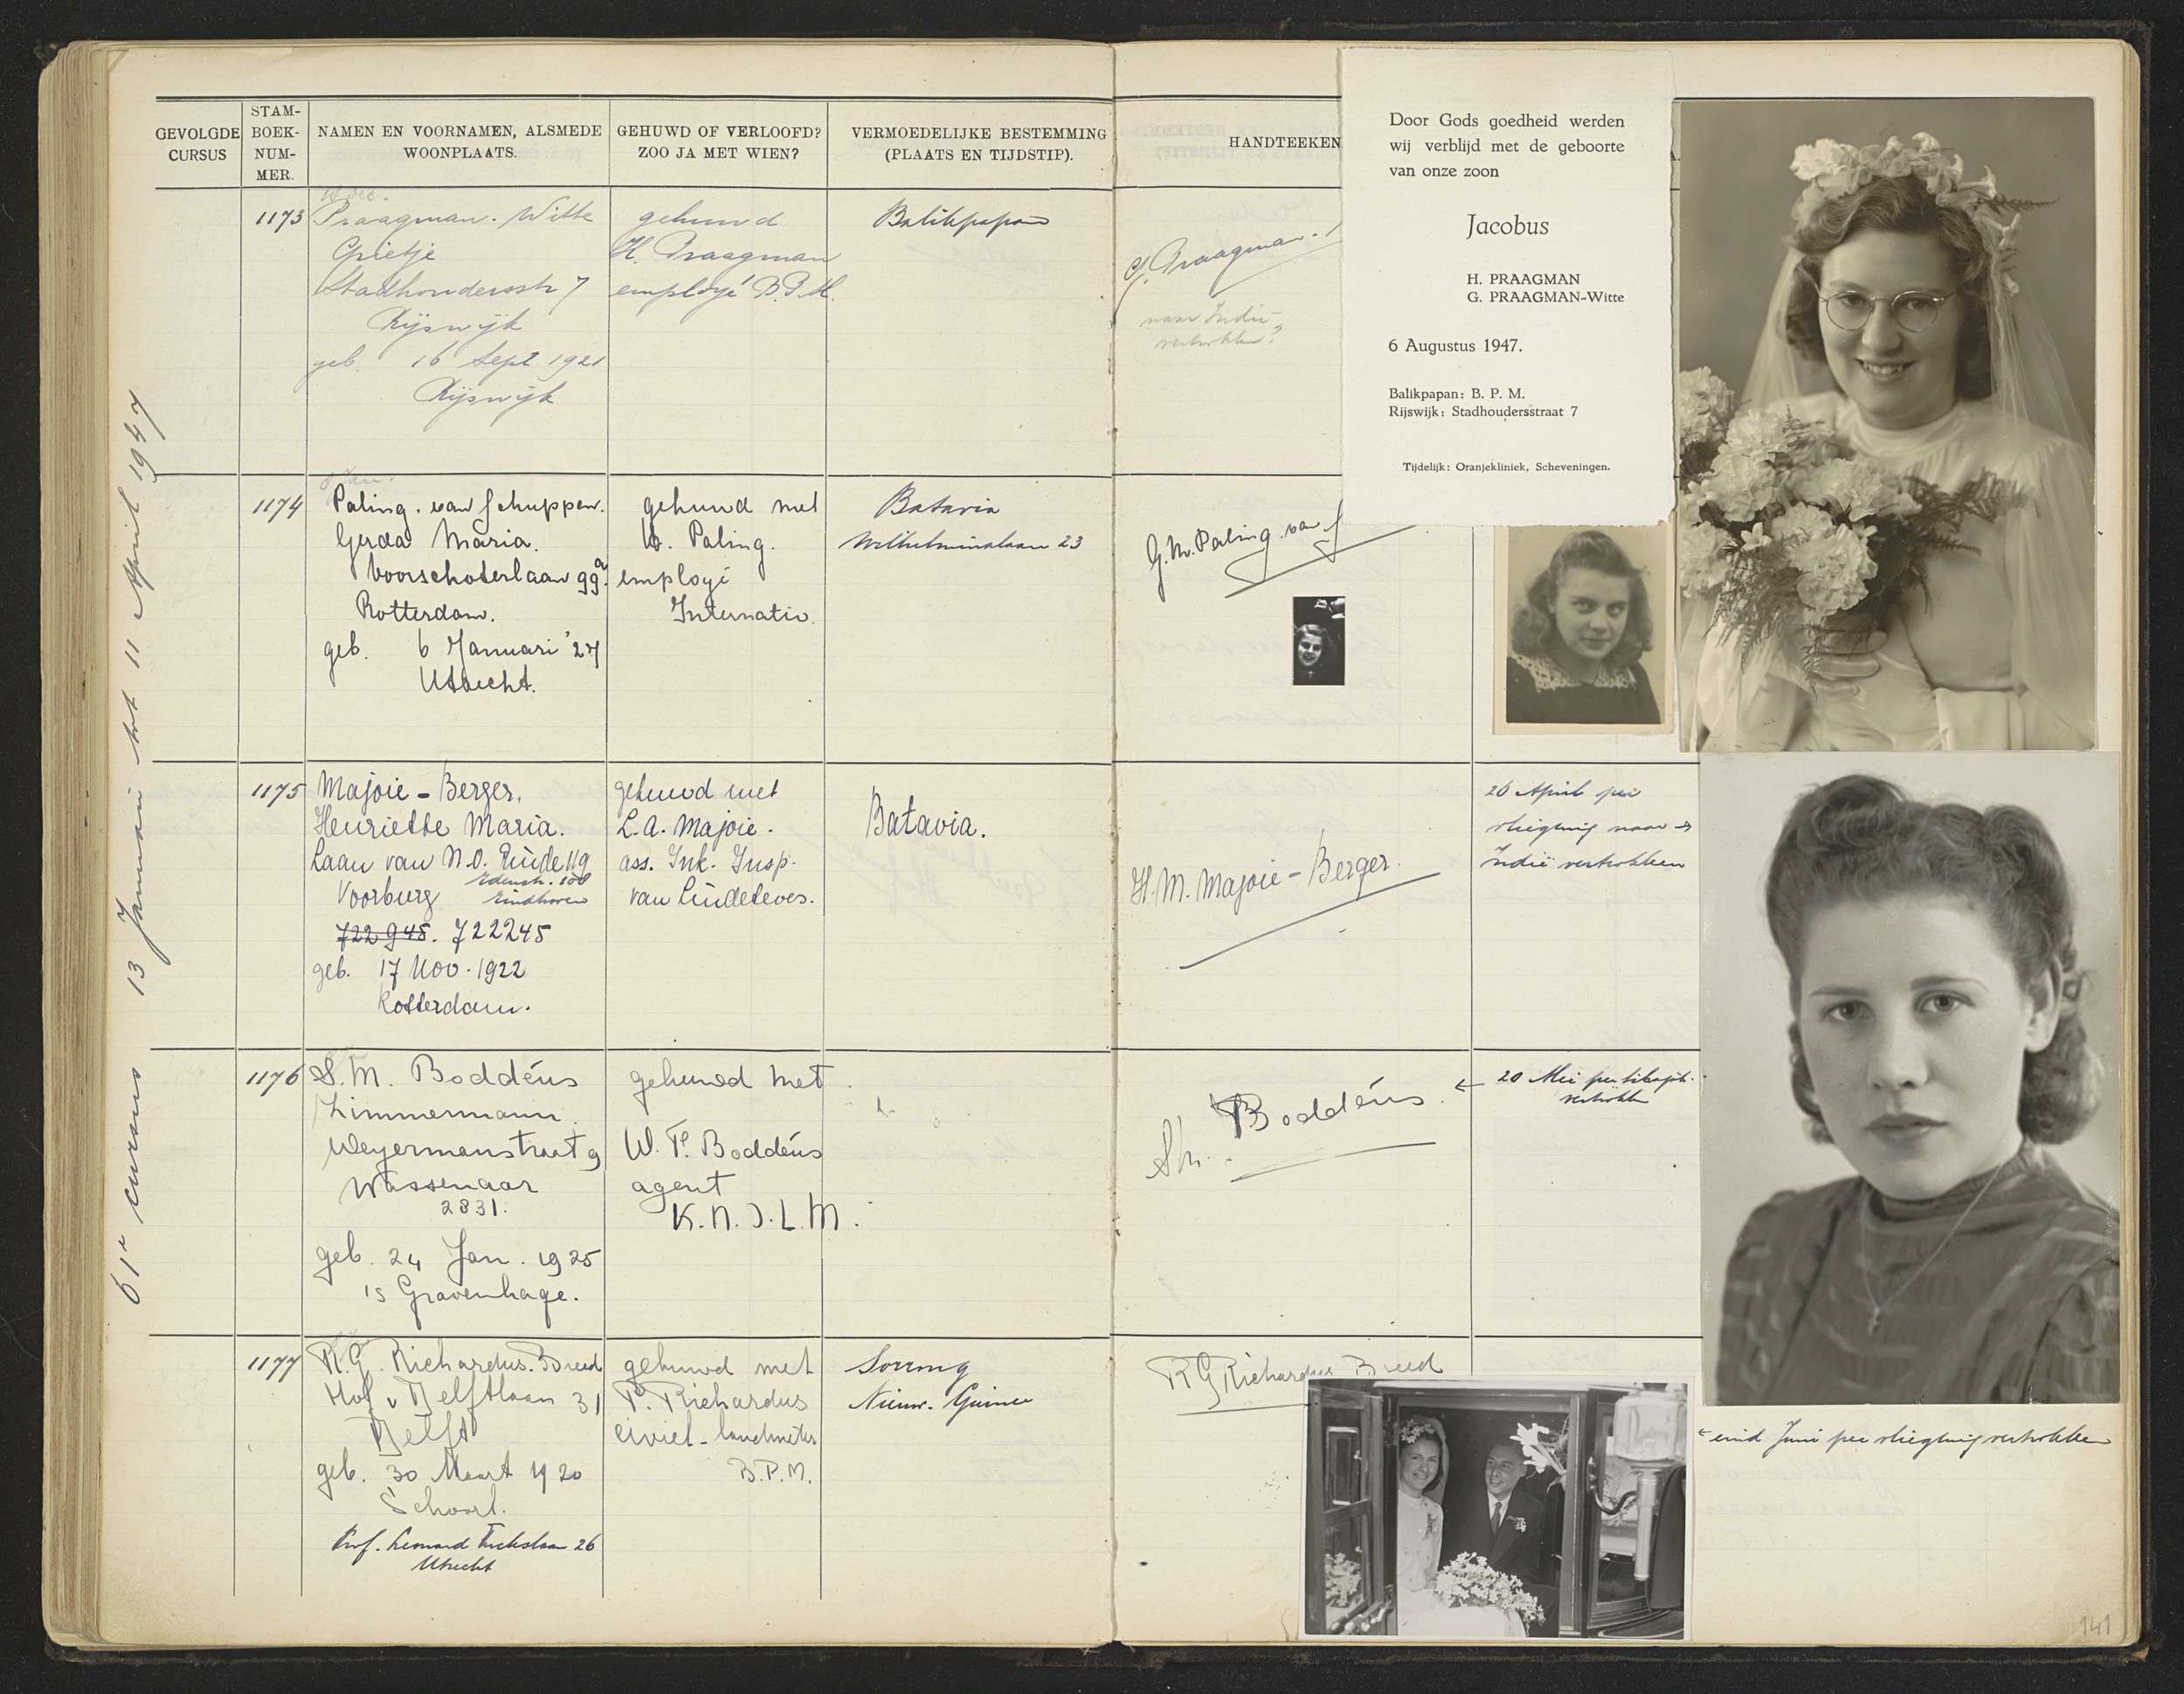 GEVOLGDE CURSUS
STAM-BOEK-NUM-MER.
NAMEN EN VOORNAMEN, ALSMEDE WOONPLAATS.
GEHUWD OF VERLOOFD? ZOO JA MET WIEN?
VERMOEDELIJKE BESTEMMING (PLAATS EN TIJDSTIP).
HANDTEEKEN
61e cursus 13 Januari tot 11 April 1947
1173
Praagman. Witte
Grietje
Stadhoudersstr 7
Rijswijk
geb. 16 Sept 1921
Rijswijk
gehuwd
H. Praagman
employé B.P.M.
Balikpapan
G. Praagman.
naar Indië
vertrokken?
Door Gods goedheid werden
wij verblijd met de geboorte
van onze zoon
Jacobus
H. PRAAGMAN
G. PRAAGMAN-Witte
6 Augustus 1947.
Balikpapan: B. P. M.
Rijswijk: Stadhoudersstraat 7
Tijdelijk: Oranjekliniek, Scheveningen.
1174
Paling. van Schuppen.
Gerda Maria.
Voorschoterlaan 99a.
Rotterdam.
geb. 6 Januari '27
Utrecht.
gehuwd met
W. Paling.
employé
Internatio.
Batavia
Wilhelminalaan 23
G.M. Paling van S
1175
Majoie - Berger.
Henriette Maria.
Laan van N.O. Einde 119
Voorburg
Edenstr. 100
Eindhoven
722945. 722245
geb. 17 Nov. 1922
Rotterdam.
gehuwd met
L.A. Majoie.
ass. Ink. Insp.
van Lindeteves.
Batavia.
H.M. Majoie - Berger
26 April per
vliegtuig naar
Indië vertrokken
1176
S.M. Boddéus
Zimmermann.
Weyermanstraat 9
Wassenaar
2831.
geb. 24 Jan. 1925
's Gravenhage.
gehuwd met
W. F. Boddéus
agent
K.N.I.L.M.
Sm. Boddéus.
← 20 Mei per
vertrokken
1177
R.G. Richardus. Breed
Hof v Delftlaan 31
Delft
geb. 30 Maart 1920
Schoorl.
Prof. Leonard Fuchslaan 26
Utrecht
gehuwd met
P. Richardus
civiel-landmeter
B.P.M.
Sorong
Nieuw. Guinea
RG Richardus Breed
← eind Juni per vliegtuig vertrokken
141